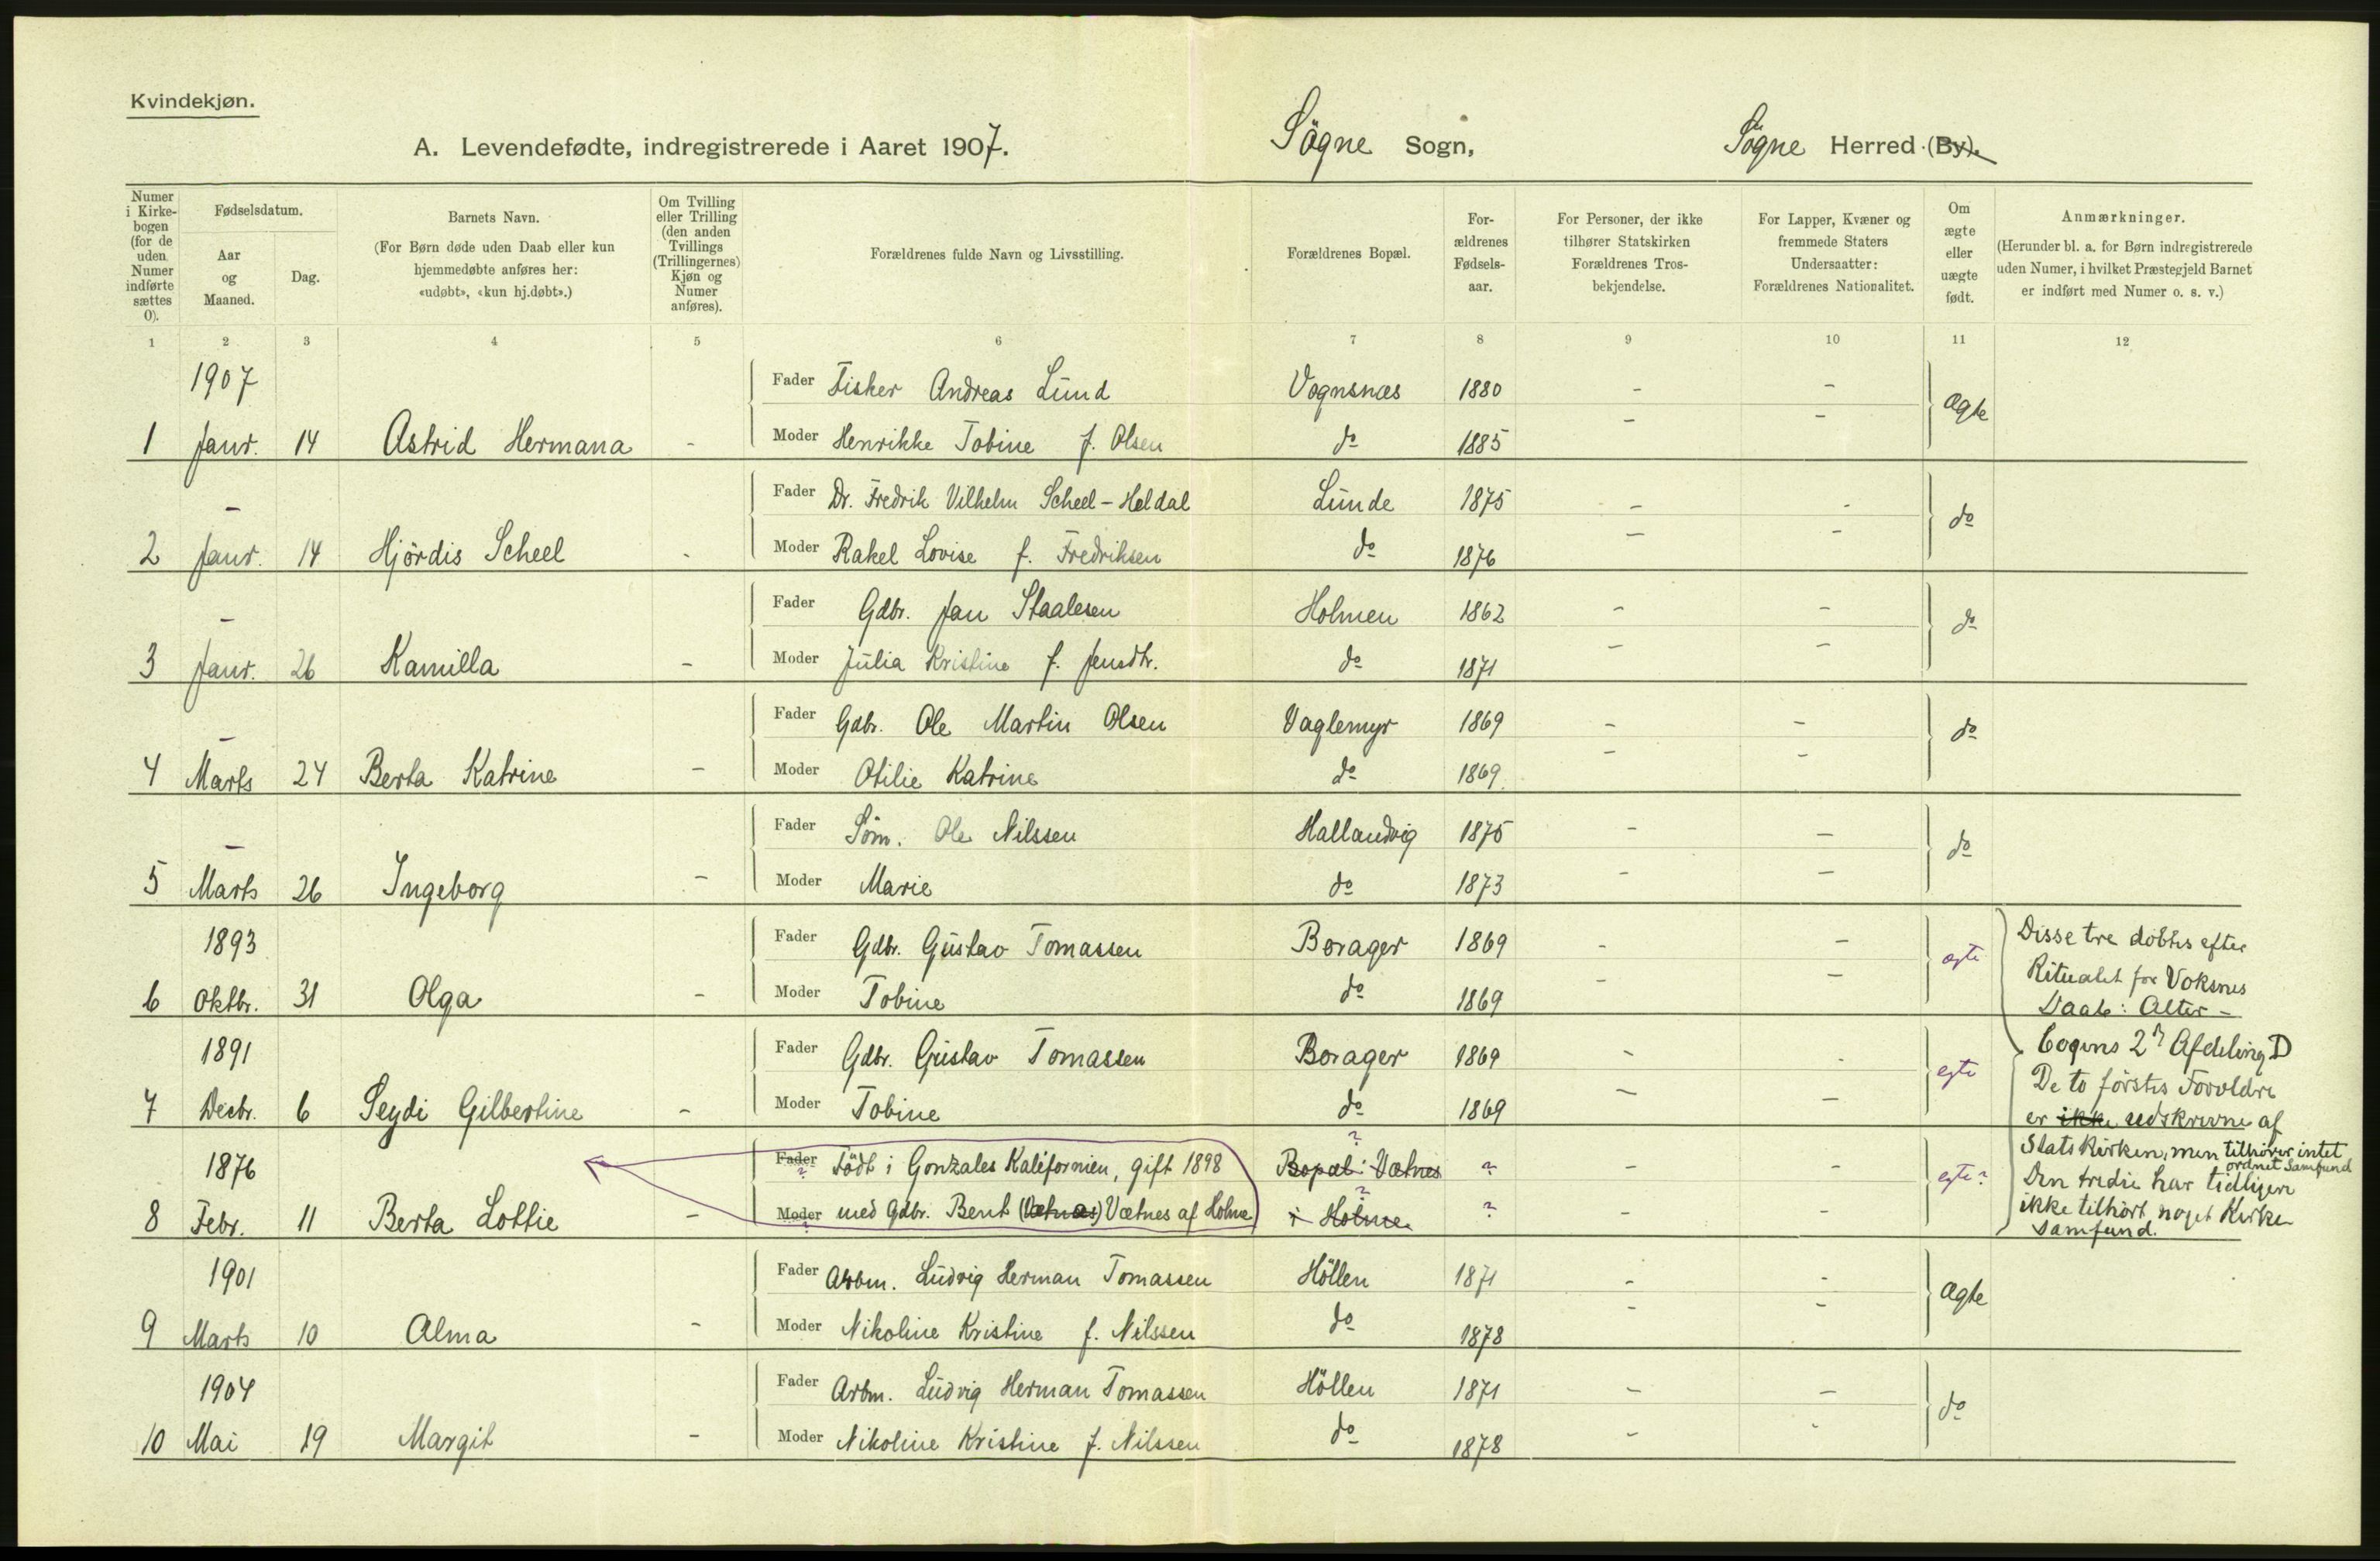 Kvindekjøn.
A. Levendefødte, indregistrerede i Aaret 1907. Søgne Sogn, Søgne Herred (By).
Numer i Kirkebogen (for de uden Numer indførte sættes 0).
Fødselsdatum.
Aar og Maaned.
Dag.
Barnets Navn.
(For Børn døde uden Daab eller kun hjemmedøbte anføres her: «udøbt», «kun hj.døbt».)
Om Tvilling eller Trilling (den anden Tvillings (Trillingernes) Kjøn og Numer anføres).
Forældrenes fulde Navn og Livsstilling.
Forældrenes Bopæl.
For-ældrenes Fødsels-aar.
For Personer, der ikke tilhører Statskirken Forældrenes Tros-bekjendelse.
For Lapper, Kvæner og fremmede Staters Undersaatter: Forældrenes Nationalitet.
Om ægte eller uægte født.
Anmærkninger.
(Herunder bl. a. for Børn indregistrerede uden Numer, i hvilket Præstegjeld Barnet er indført med Numer o. s. v.)
1 2 3 4 5 6 7 8 9 10 11 12
1907 Fader Fisker Andreas Lund Vognsnæs 1880 - - Ægte
1 Janr. 14 Astrid Hermana - Moder Henrikke Tobine f. Olsen do 1885 - -
- Fader Dr. Fredrik Vilhelm Scheel-Heldal Lunde 1875 - - do
2 Janr. 14 Hjördis Scheel - Moder Rakel Lovise f. Fredriksen do 1876 - -
- Fader Gdbr. Jan Staalesen Holmen 1862 - - do
3 Janr. 26 Kamilla - Moder Julia Kristine f. Jensdtr. do 1871 - -
- Fader Gdbr. Ole Martin Olsen Vaglemyr 1869 - - do
4 Marts 24 Berta Katrine - Moder Otilie Katrine do 1869 - -
- Fader Söm. Ole Nilssen Hallandvig 1875 - - do
5 Marts 26 Ingeborg - Moder Marie do 1873 - -
1893 Fader Gdbr. Gustav Tomassen Borager 1869 - - egte
6 Oktbr. 31 Olga - Moder Tobine do 1869 - -
1891 Fader Gdbr. Gustav Tomassen Borager 1869 - - egte
7 Decbr. 6 Seydi Gilbertine - Moder Tobine do 1869 - -
1876 Fader ? Födt i Gonzales Kalifornien, gift 1898 Bopæl: Vætnes ? ? - - egte?
8 Febr. 11 Berta Lottie - Moder ? med Gdbr. Bent (Vætnes) Vætnes af Holme i Holme ? ? - -
1901 Fader Arbm. Ludvig Herman Tomassen Höllen 1871 - - Ægte
9 Marts 10 Alma - Moder Nikoline Kristine f. Nilssen do 1878 - -
1904 Fader Arbm. Ludvig Herman Tomassen Höllen 1871 - - do
10 Mai 19 Margit - Moder Nikoline Kristine f. Nilssen do 1878 - -
Disse tre döbtes efter
Ritualet for Voksnes
Daab: Alter-
bogens 2n Afdeling D
De to förstes Forældre
er ikke udskrevne af
Statskirken, men tilhører intet
ordnet Samfund
Den tredie har tidligere
ikke tilhört noget Kirke
samfund.